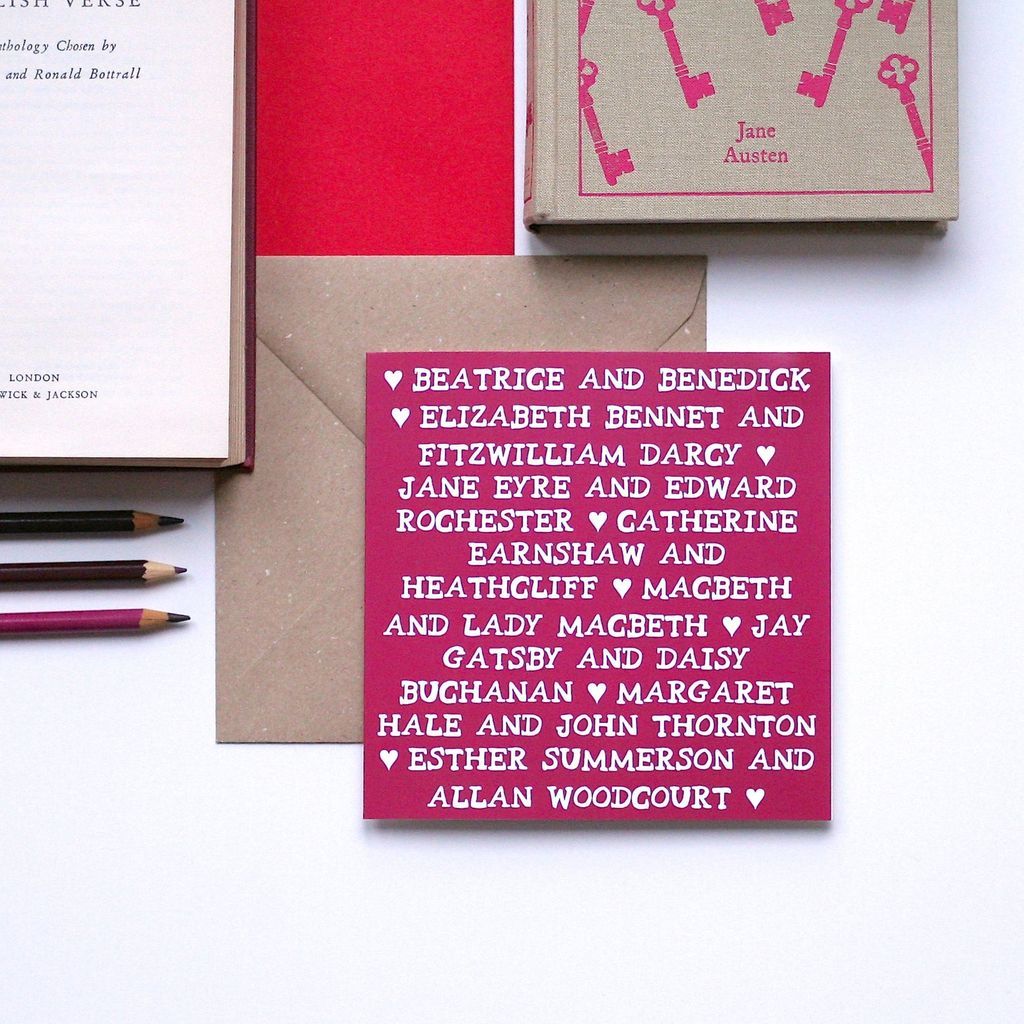 LISH VERSE
thology Chosen by
and Ronald Bottrall
LONDON
WICK & JACKSON
Jane
Austen
♥ BEATRICE AND BENEDICK
♥ ELIZABETH BENNET AND
FITZWILLIAM DARCY ♥
JANE EYRE AND EDWARD
ROCHESTER ♥ CATHERINE
EARNSHAW AND
HEATHCLIFF ♥ MACBETH
AND LADY MACBETH ♥ JAY
GATSBY AND DAISY
BUCHANAN ♥ MARGARET
HALE AND JOHN THORNTON
♥ ESTHER SUMMERSON AND
ALLAN WOODCOURT ♥